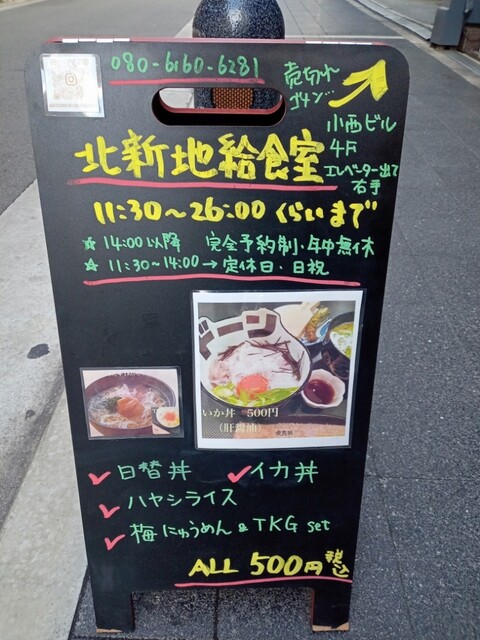 080-6160-6281
売切れ
ゴメン…
小西ビル
4F
エレベーター出て
右手
北新地給食室
11:30～26:00くらいまで
☆ 14:00以降 完全予約制・年中無休
☆ 11:30～14:00→定休日、日祝
ドーン
いか丼 500円
（肝醤油）
✓日替丼 ✓イカ丼
✓ハヤシライス
✓梅にゅうめん&TKG set
ALL 500円税込